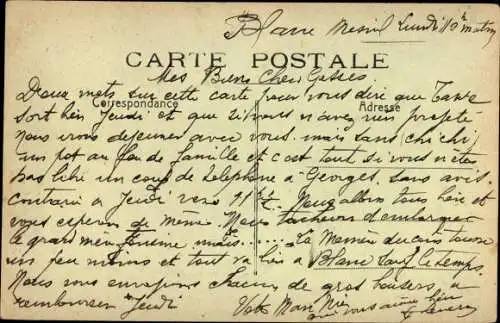 Blanc Mesnil Lundi 10h matin
CARTE POSTALE
Mes Biens Chers Gosses.
Deux mots sur cette carte pour vous dire que Tante
Correspondance
Adresse
sort bien Jeudi et que si vous n'avez rien projeté
nous irons dejeuner avec vous mais sans chichi
un pot au feu de famille et c'est tout si vous n'etes
pas libre un coup de telephone a Georges. Sans avis
contraire a Jeudi vers 11h ½. Nous allons tous bien et
vous esperons de même. Nous tacherons d'embarquer
le grand mais
un peu moins et tout va bien a Blanc sauf le temps.
Nous vous envoyons de gros baisers a
rembourser Jeudi
Votre qui vous aime bien